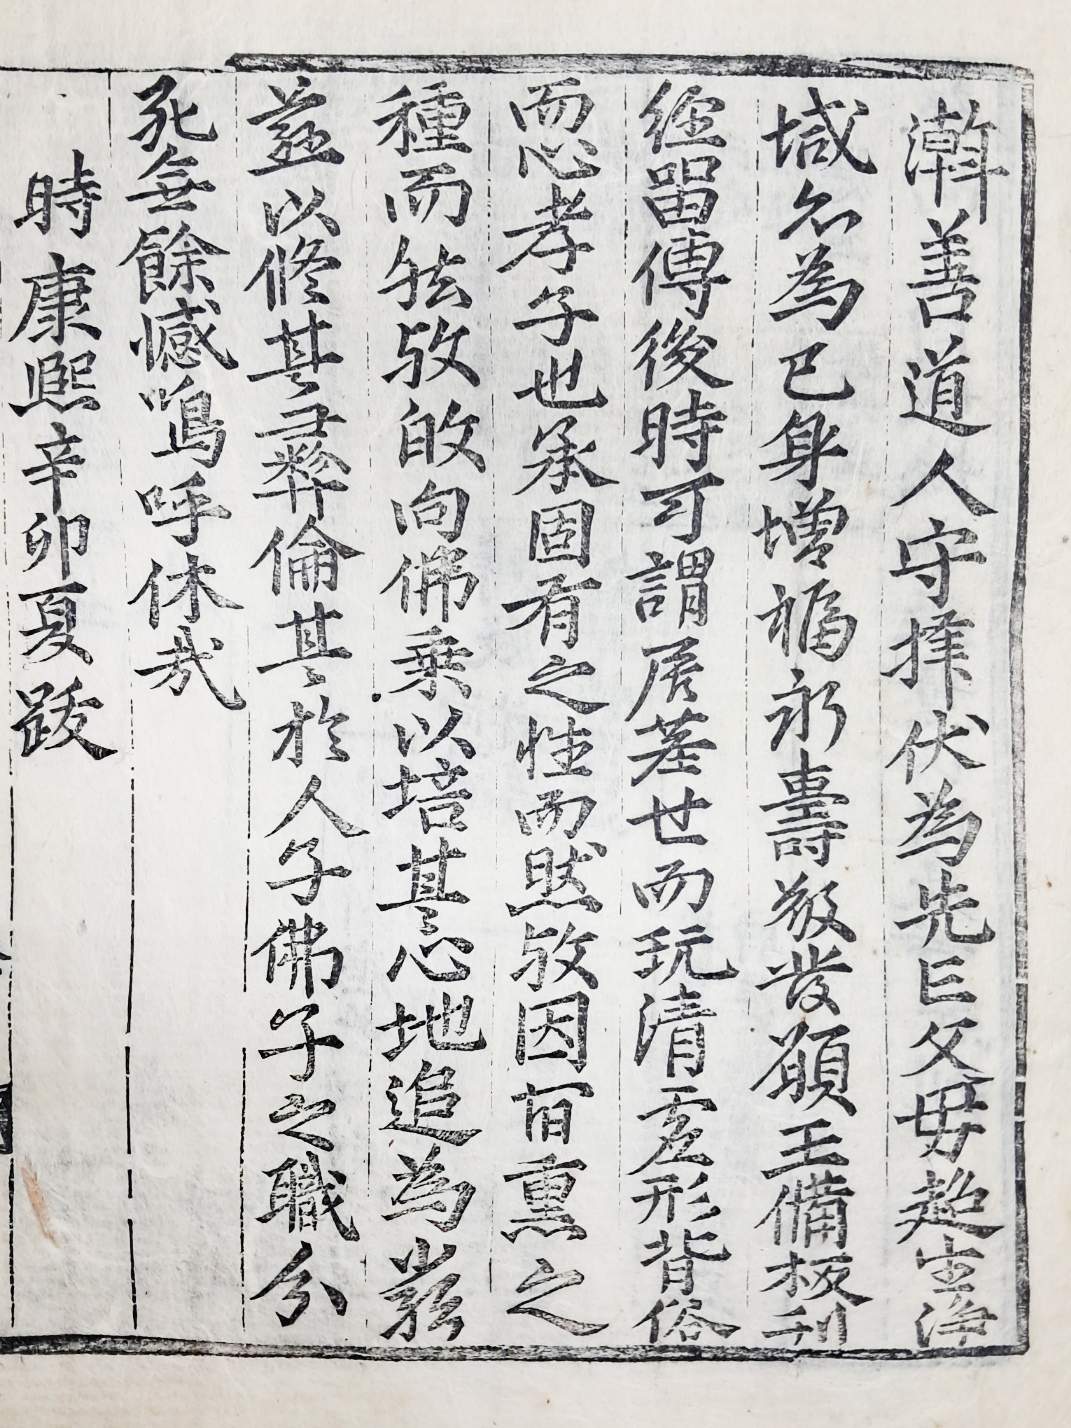 澣善道人守擇伏為先亡父母超生淨
域亦為己身增福永壽敬發願王備板刊
經留傳後時可謂居塵世而玩清虛形背俗
而心孝子也承固有之性而然歟因宿熏之
種而能歟的向佛乘以培其心地追為茲
益以修其彛倫其於人子佛子之職分
死無餘憾嗚呼休哉
時康熙辛卯夏跋